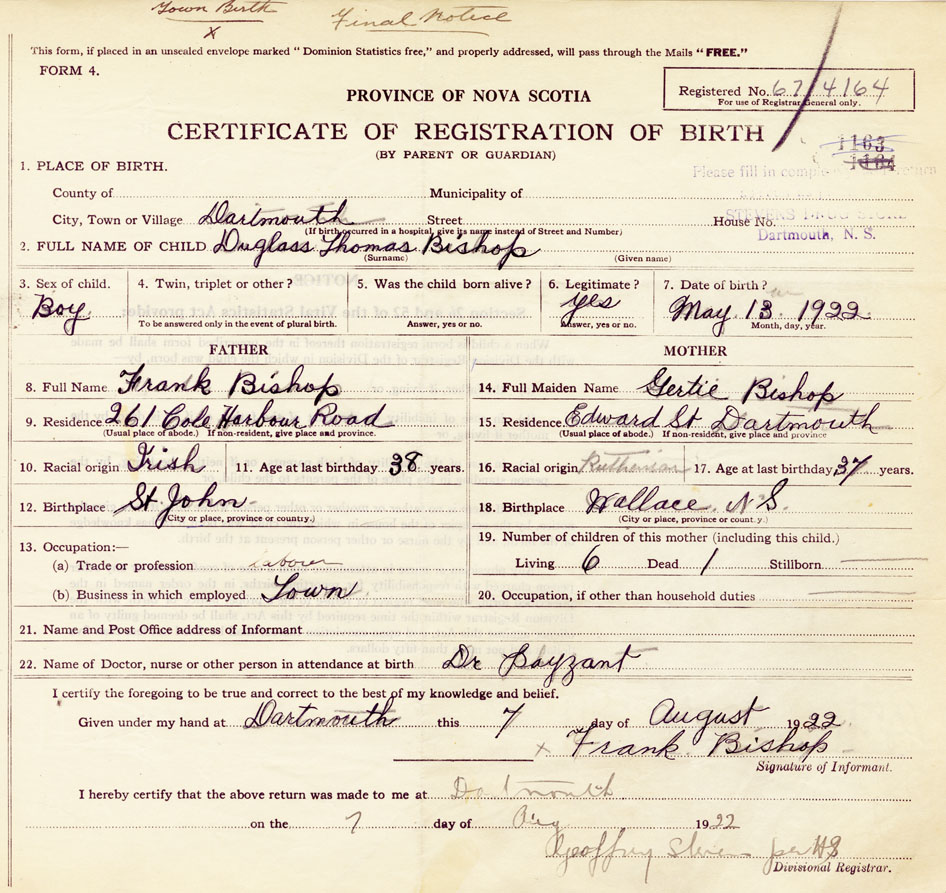 Town Birth
X
Final Notice
This form, if placed in an unsealed envelope marked "Dominion Statistics free," and properly addressed, will pass through the Mails "FREE."
FORM 4.
Registered No. 67/4164
For use of Registrar General only.
PROVINCE OF NOVA SCOTIA
CERTIFICATE OF REGISTRATION OF BIRTH
(BY PARENT OR GUARDIAN)
1163
1164
1. PLACE OF BIRTH.
Please fill in return
County of Municipality of
City, Town or Village Dartmouth Street House No.
STEVENS DRUG STORE
(If birth occurred in a hospital, give its name instead of Street and Number)
Dartmouth, N. S.
2. FULL NAME OF CHILD Duglass Thomas Bishop
(Surname) (Given name)
3. Sex of child. 4. Twin, triplet or other? 5. Was the child born alive? 6. Legitimate? 7. Date of birth?
Boy. yes May 13 1922
To be answered only in the event of plural birth. Answer, yes or no. Answer, yes or no. Month, day, year.
FATHER MOTHER
8. Full Name Frank Bishop 14. Full Maiden Name Gertie Bishop
9. Residence 261 Cole Harbour Road 15. Residence Edward St Dartmouth
(Usual place of abode.) If non-resident, give place and province. (Usual place of abode.) If non-resident, give place and province
10. Racial origin Irish 11. Age at last birthday 38 years. 16. Racial origin Ruthenian 17. Age at last birthday 37 years.
12. Birthplace St. John 18. Birthplace Wallace N S.
(City or place, province or country.) (City or place, province or country.)
13. Occupation:— 19. Number of children of this mother (including this child.)
(a) Trade or profession labourer Living 6 Dead 1 Stillborn
(b) Business in which employed Town 20. Occupation, if other than household duties
21. Name and Post Office address of Informant
22. Name of Doctor, nurse or other person in attendance at birth Dr Payzant
I certify the foregoing to be true and correct to the best of my knowledge and belief.
Given under my hand at Dartmouth this 7 day of August 1922
x Frank Bishop
Signature of Informant.
I hereby certify that the above return was made to me at Dartmouth
on the 7 day of Aug 1922
Geoffrey Stevens per HS
Divisional Registrar.